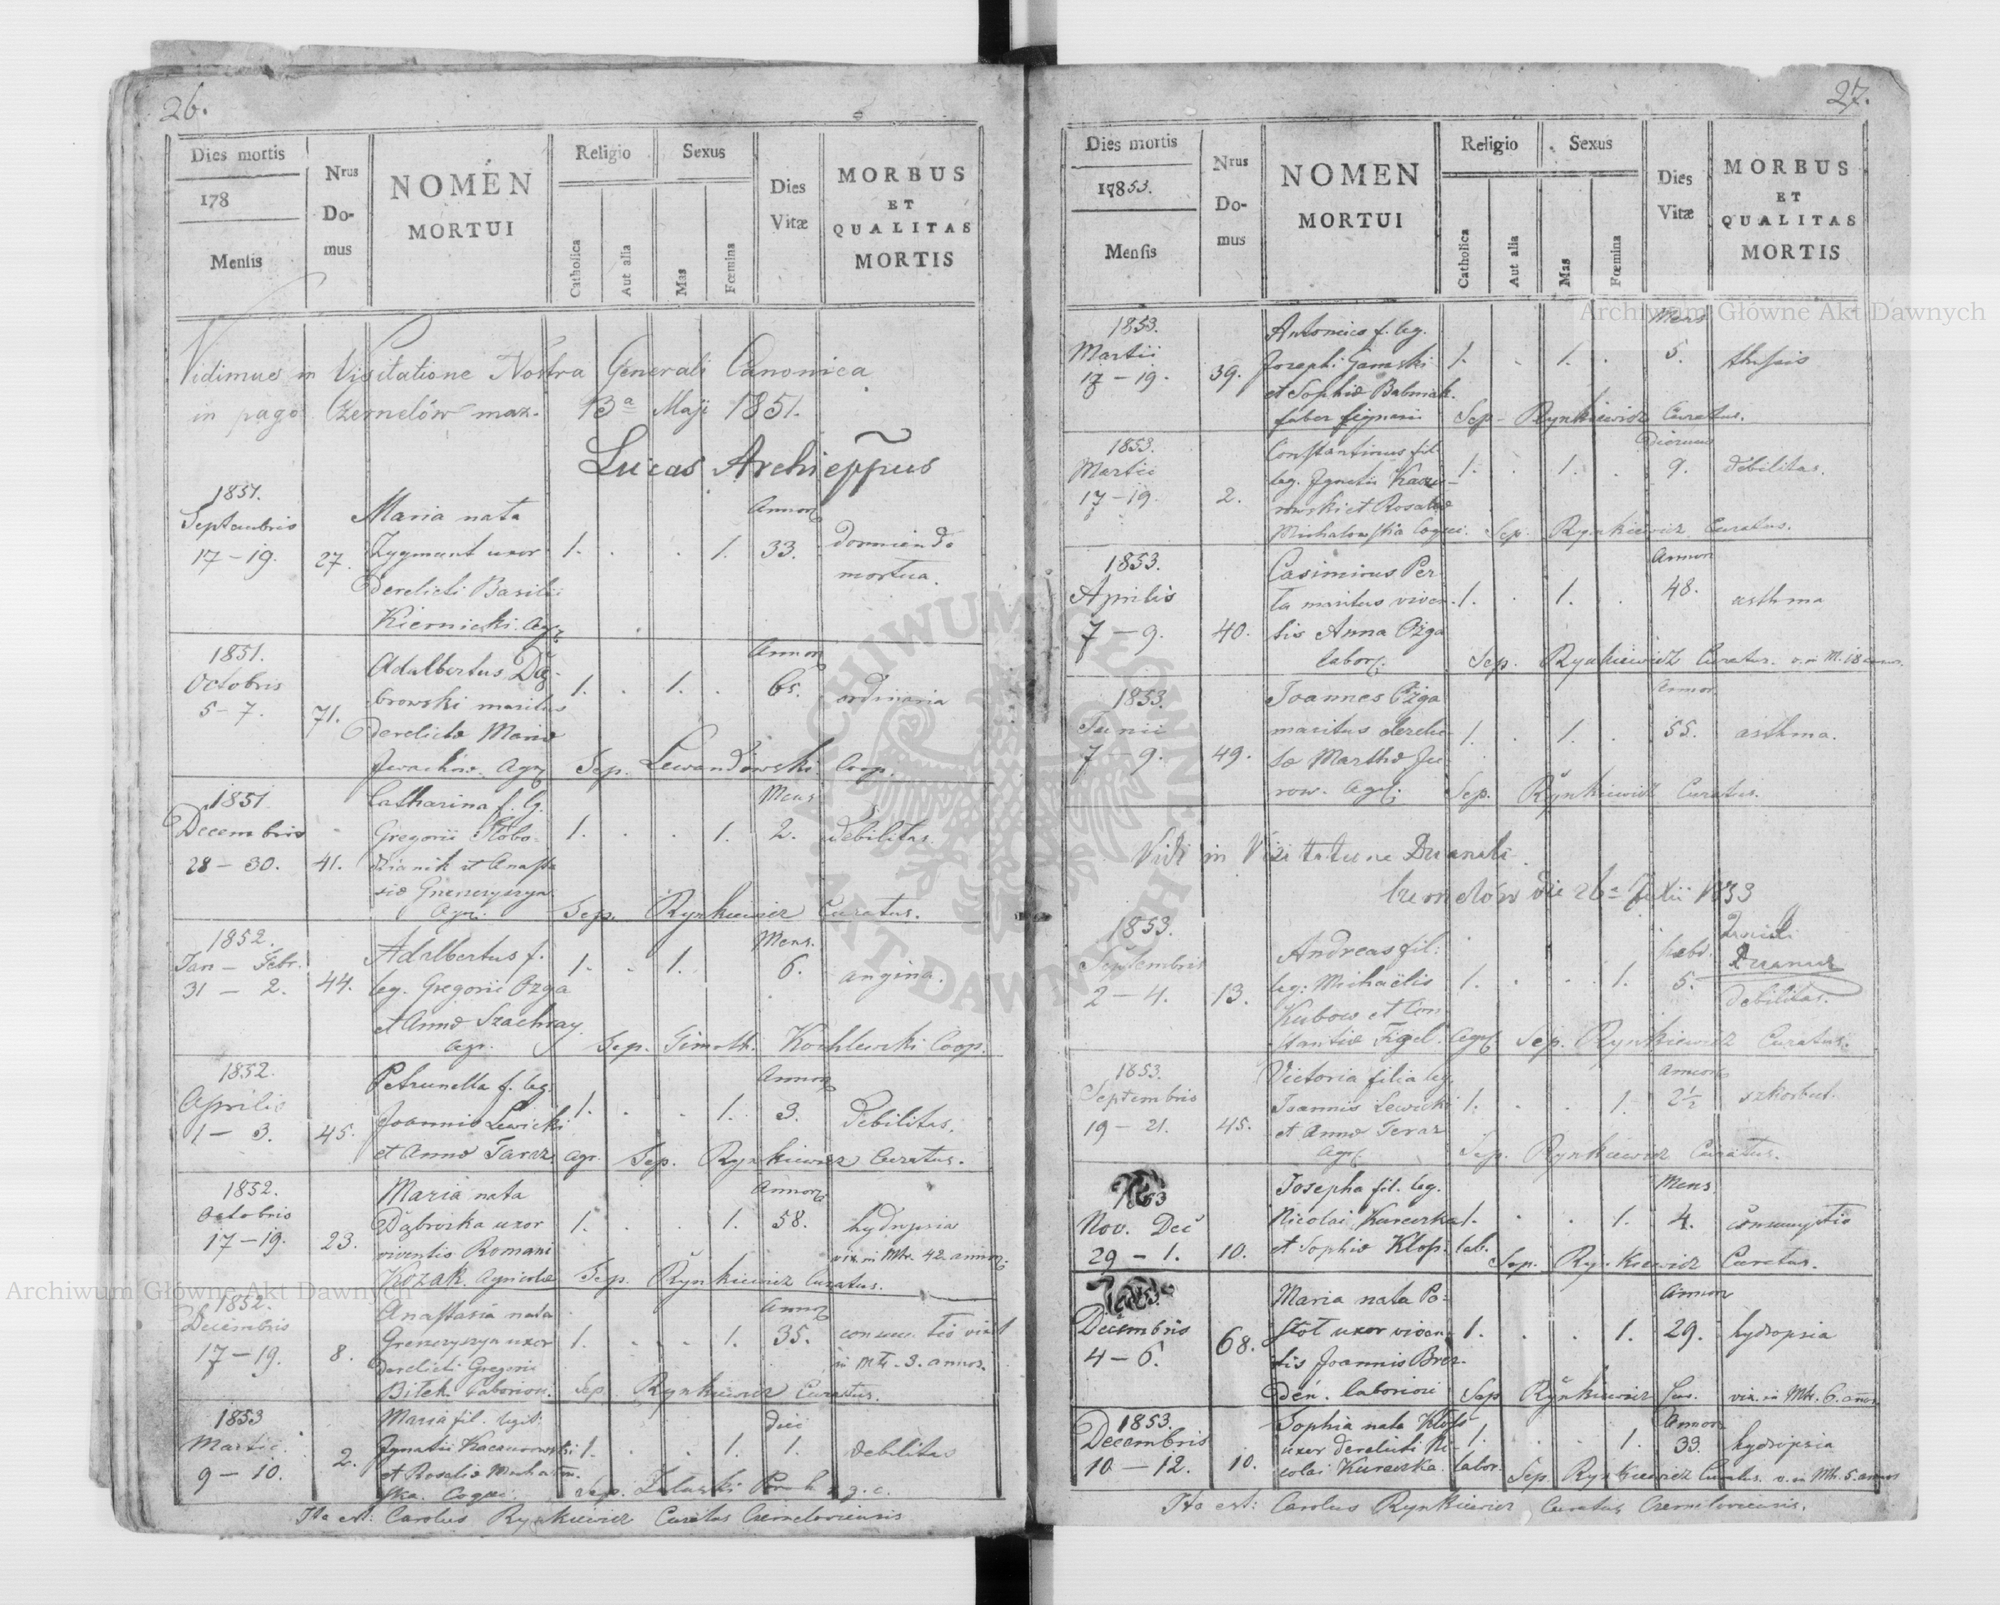 26.
Dies mortis
178
Mensis
Nrus
Do-
mus
NOMEN
MORTUI
Religio
Catholica
Aut alia
Sexus
Mas
Fœmina
Dies
Vitæ
MORBUS
ET
QUALITAS
MORTIS
Vidimus in Visitatione Nostra Generali Canonica
in pago Czernelów maz. 13a Maji 1851.
Lucas Archieppus
1851.
Septembris
17 – 19.
27.
Maria nata
Zygmunt uxor
derelicti Basilii
Kiernicki. Agr.
1. . . 1.
Annor
33.
dormiendo
mortua.
1851.
Octobris
5 – 7.
71.
Adalbertus Dą-
browski maritus
derelictæ Mariæ
Iwachów. Agr.
1. . 1. .
Annor
65.
ordinaria
Sep. Lewandowski Coop.
1851.
Decembris
28 – 30.
41.
Catharina f. lg.
Gregorii Słobo-
dzianik et Anasta
siæ Greneryszyn
Agr.
1. . . 1.
Mens.
2.
debilitas.
Sep. Rynkiewicz Curatus.
1852.
Jan – Febr.
31 – 2.
44.
Adalbertus f.
leg. Gregorii Ozga
et Annæ Szachray.
agr.
1. . 1.
Mens.
6.
angina.
Sep. Timoth. Kochlewski Coop.
1852.
Aprilis
1 – 3.
45.
Petrunella f. leg.
Joannis Lewicki
et Annæ Taraz. agr.
1. . . 1.
Annor
3.
debilitas.
Sep. Rynkiewicz Curatus.
1852.
Octobris
17 – 19.
23.
Maria nata
Dąbroska uxor
viventis Romani
Kozak. Agricolæ
1. . . 1.
Annor
58.
hydropsia
vix. in Mtr. 42. annor.
Sep. Rynkiewicz Curatus.
1852.
Decembris
17 – 19.
8.
Anastasia nata
Greneryszyn uxor
derelicti Gregorii
Bitek. Laboriosi.
1. . . 1.
Annor
35.
in Mtr. 3. annos.
Sep. Rynkiewicz Curatus.
1853
Martii
9 – 10.
2.
Maria fil. legit.
Ignatii Kaczanowski
et Rosaliæ
1. . . 1.
Die
1.
debilitas
Sep. Zaluski g. c.
Ita est: Carolus Rynkiewicz Curatus Czerneloviensis
27.
Dies mortis
17853.
Mensis
Nrus
Do-
mus
NOMEN
MORTUI
Religio
Catholica
Aut alia
Sexus
Mas
Fœmina
Dies
Vitæ
MORBUS
ET
QUALITAS
MORTIS
1853.
Martii
17 – 19.
39.
Antonius f. leg.
Josephi
et Sophiæ Babniak.
1. . 1. .
Mens
5.
thusis
Sep. Rynkiewicz Curatus.
1853.
Martii
17 – 19.
2.
Constantinus fil.
leg. Ignatii Kacza-
nowski et Rosaliæ
Michalowska
1. . 1. .
Dierum
9.
debilitas.
Sep. Rynkiewicz Curatus.
1853.
Aprilis
7 – 9.
40.
Casimirus Per-
ta maritus viven-
tis Anna Ożga
labor.
1. . 1. .
Annor
48.
asthma
Sep. Rynkiewicz Curatus. v. in M. 18 annos.
1853.
Junii
7 – 9.
49.
Joannes Ożga
maritus derelic-
tæ Marthæ Ju
row. Agr.
1. . 1. .
Annor
55.
asthma.
Sep. Rynkiewicz Curatus.
Vidi in Visitatione Decanali.
Czernelów die 26a Julii 1853
1853.
Septembris
2 – 4.
13.
Andreas fil:
leg: Michaëlis
Kubow et Con
stantiæ Figel. agr.
1. . . 1.
5.
debilitas.
Sep. Rynkiewicz Curatus.
1853.
Septembris
19 – 21.
45.
Victoria filia leg.
Joannis Lewicki
et Annæ Teraz
Agr.
1. . . 1.
Annor
2 1/2
szkorbut.
Sep. Rynkiewicz Curatus.
Nov. Dec
29 – 1.
10.
Josepha fil. leg.
Nicolai Kurewska
et Sophiæ Kłos. lab.
1. . . 1.
Mens
4.
consumptio
Sep. Rynkiewicz Curatus.
Decembris
4 – 6.
68.
Maria nata Po-
stoł uxor viven-
tis Joannis Brez-
den. laboriosi
1. . . 1.
Annor
29.
hydropsia
Sep. Rynkiewicz Cur. vix. in Mtr. 6. annos
1853.
Decembris
10 – 12.
10.
Sophia nata Kłos
uxor derelicti Ni-
colai Kurewska. labor.
1. . . 1.
Annor
33.
hydropsia
Sep. Rynkiewicz Curatus. v. in Mtr. 5. annos
Ita est: Carolus Rynkiewicz Curatus Czerneloviensis.
Archiwum Główne Akt Dawnych
Archiwum Główne Akt Dawnych
ARCHIWUM GŁÓWNE AKT DAWNYCH